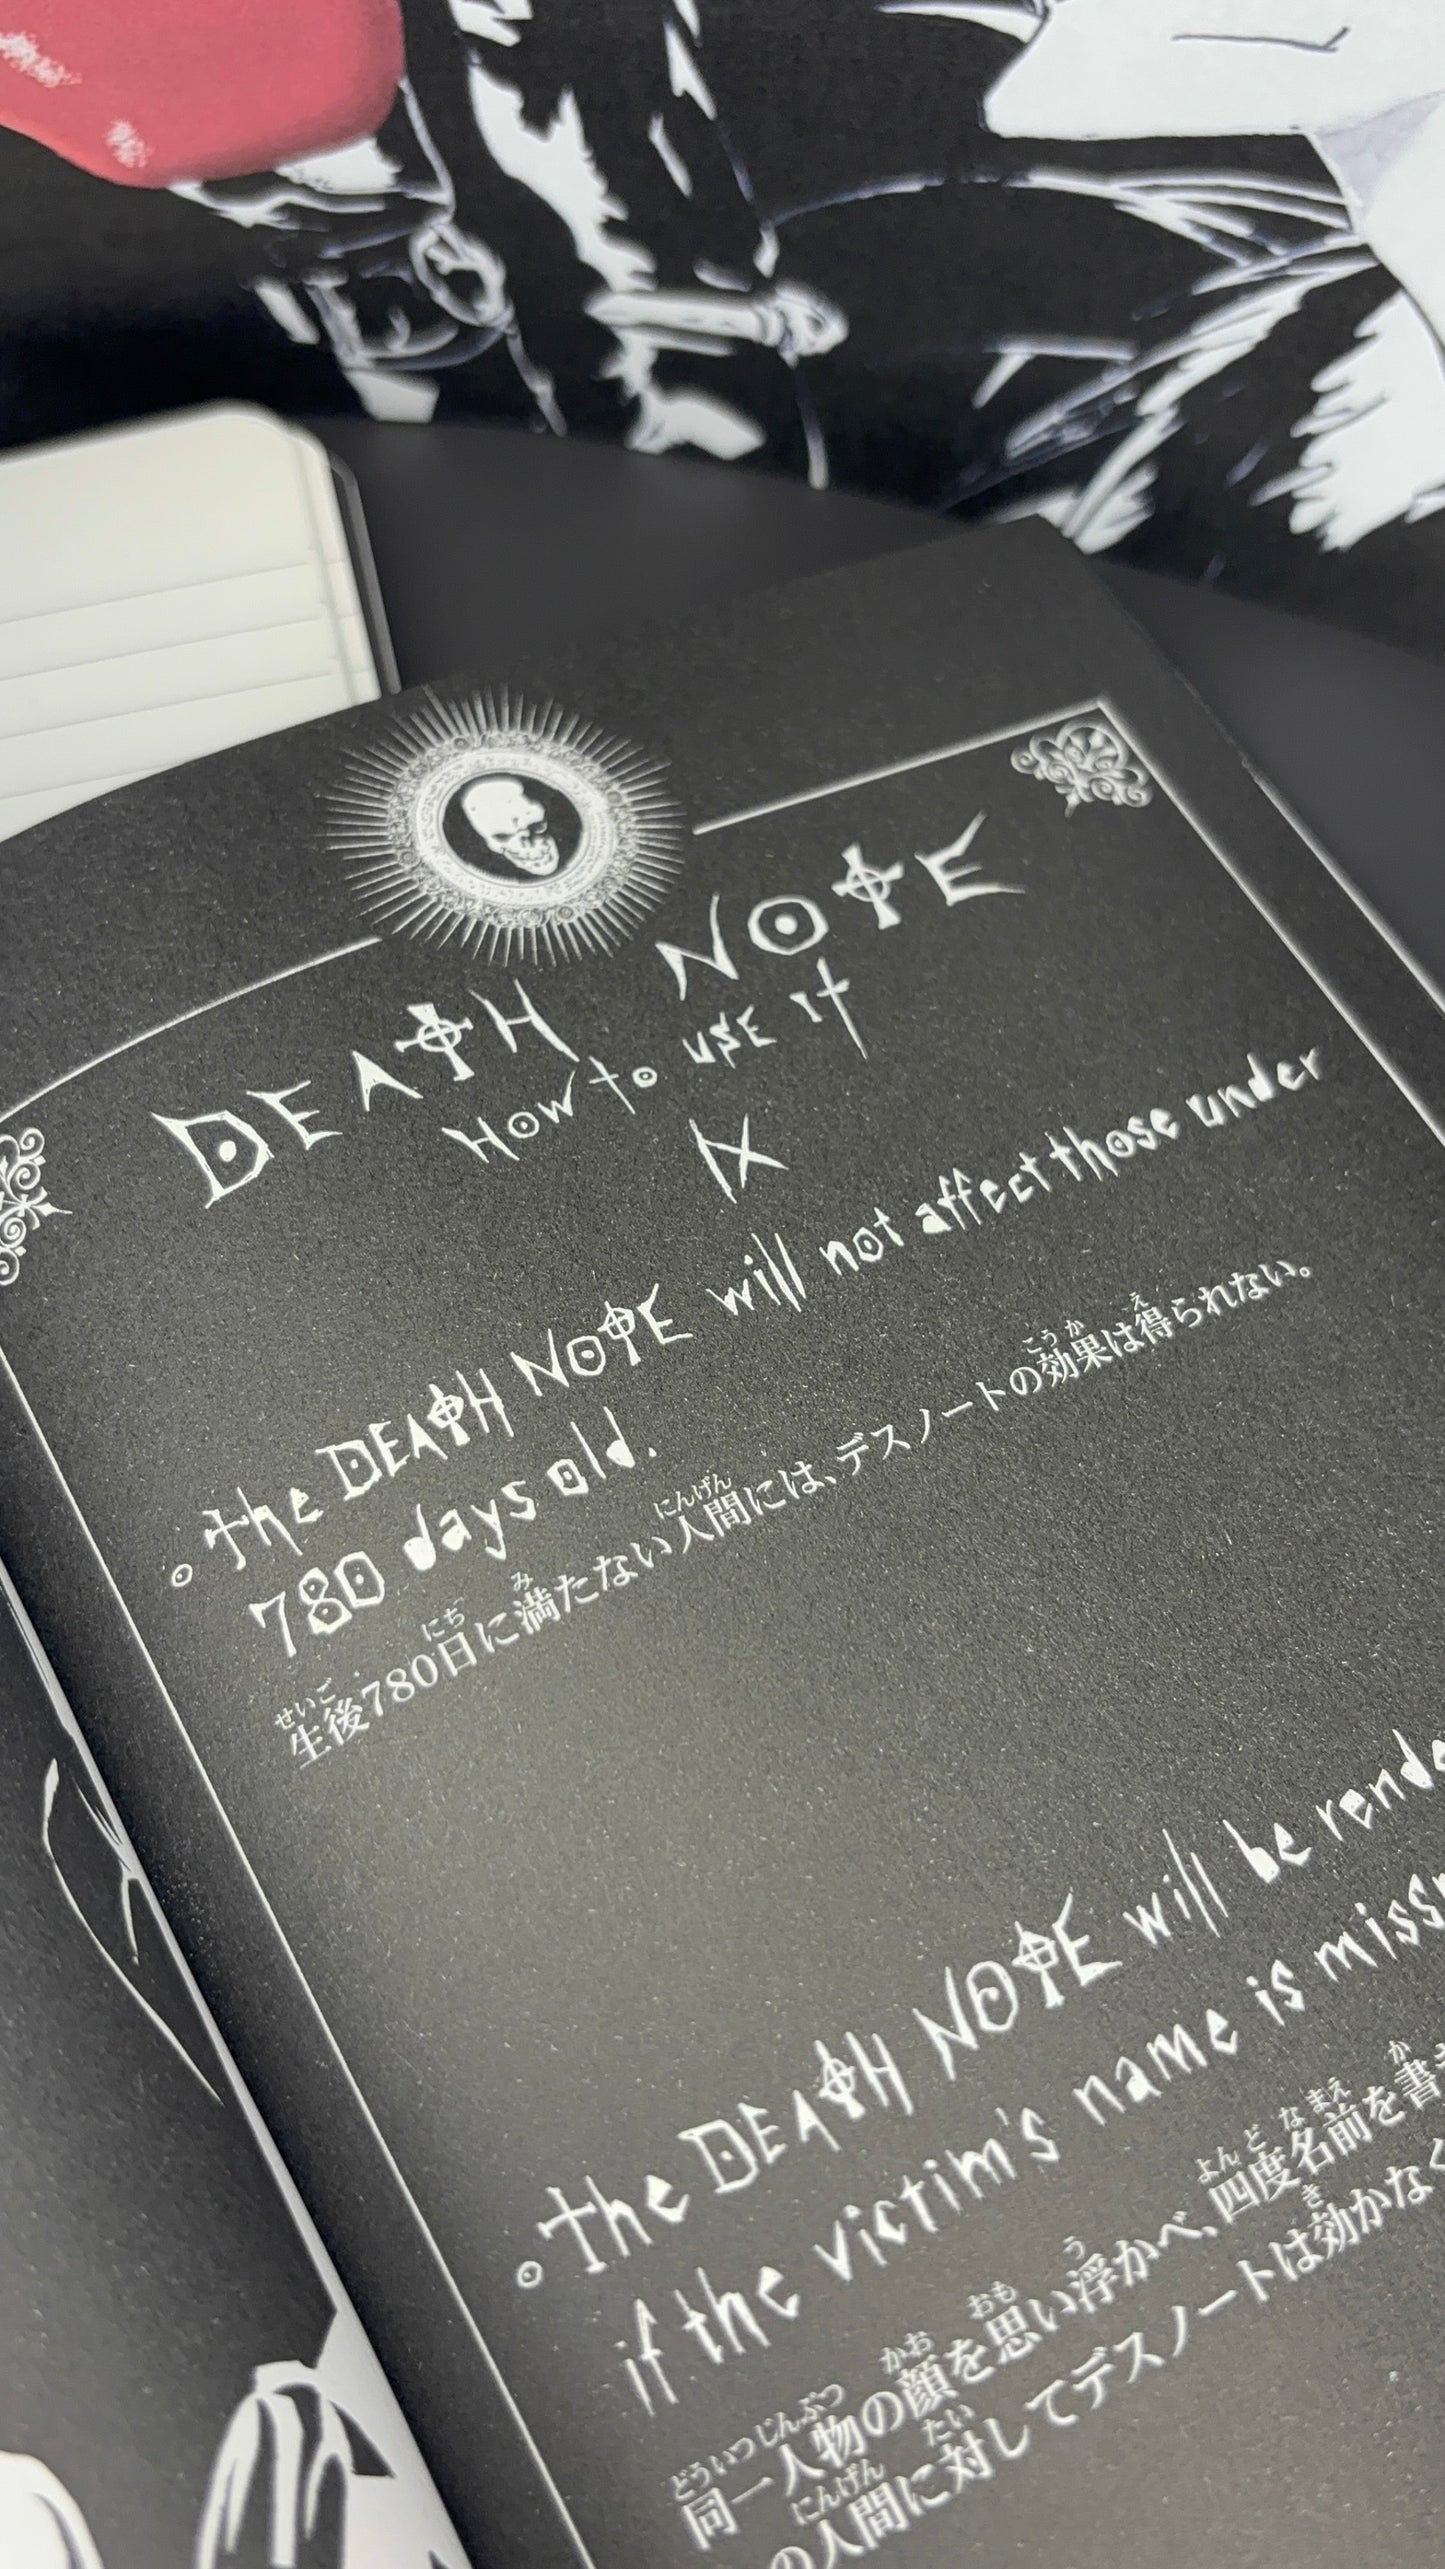 DEATH NOTE
HOW TO USE IT
IX
The DEATH NOTE will not affect those under
780 days old.
生後780日に満たない人間には、デスノートの効果は得られない。
The DEATH NOTE will be
if the victim's name is
同一人物の顔を思い浮かべ、四度名前を書
の人間に対してデスノートは効かなく